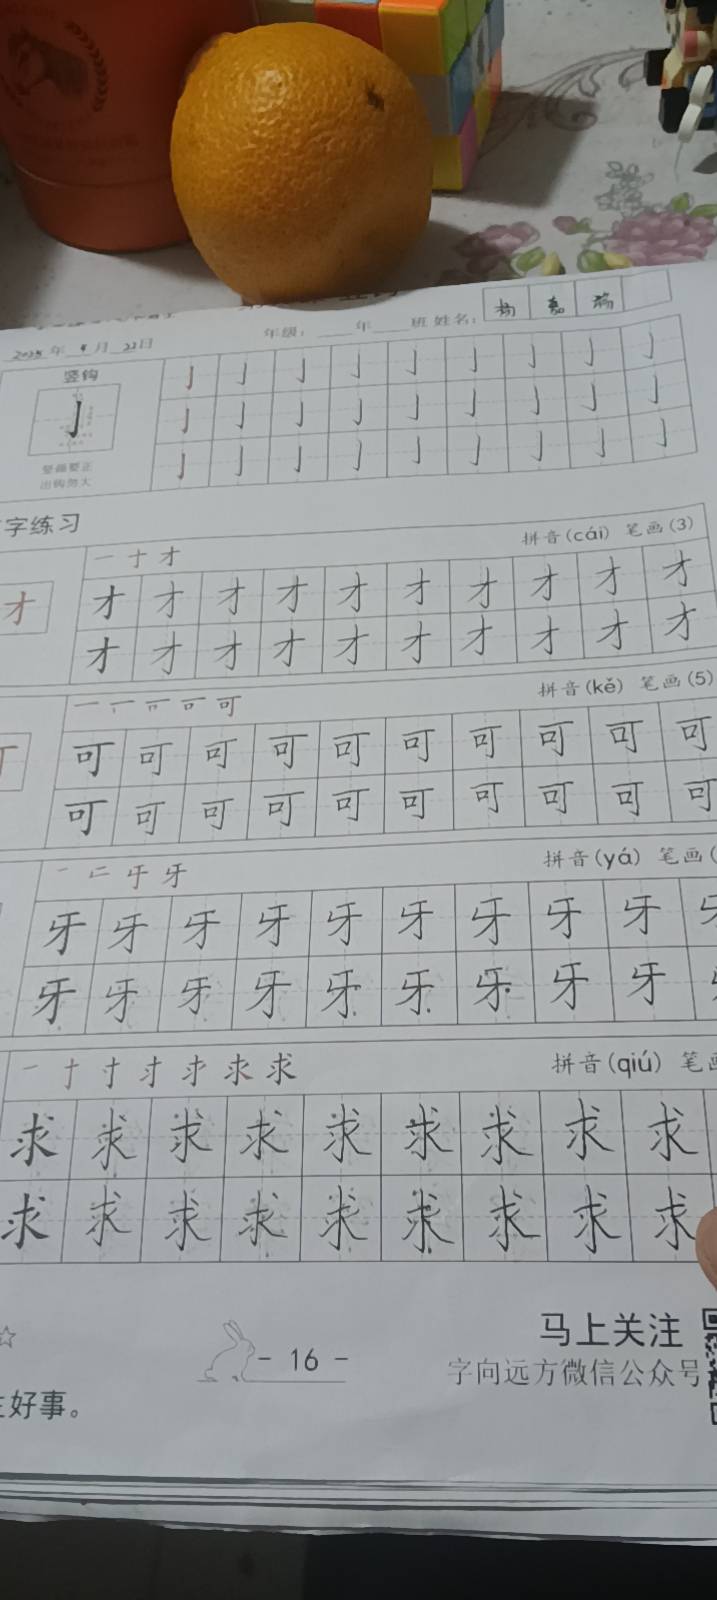 2025年 4月 22日
年级：____年____班 姓名：杨
竖钩
亅 亅 亅 亅 亅 亅 亅 亅 亅
亅 亅 亅 亅 亅 亅 亅 亅 亅 亅
竖画要正
出钩勿大
亅 亅 亅 亅 亅 亅 亅 亅 亅
字练习
一 十 才 拼音(cái) 笔画(3)
才 才 才 才 才 才 才 才 才 才 才
才 才 才 才 才 才 才 才 才 才
一 丆 可 拼音(kě) 笔画(5)
可 可 可 可 可 可 可 可 可 可
可 可 可 可 可 可 可 可 可 可
牙 拼音(yá) 笔画(
牙 牙 牙 牙 牙 牙 牙 牙 牙
牙 牙 牙 牙 牙 牙 牙 牙 牙
一 十 寸 求 拼音(qiú) 笔画
求 求 求 求 求 求 求 求 求
求 求 求 求 求 求 求 求 求
☆
- 16 -
马上关注
字向远方微信公众号
好事。